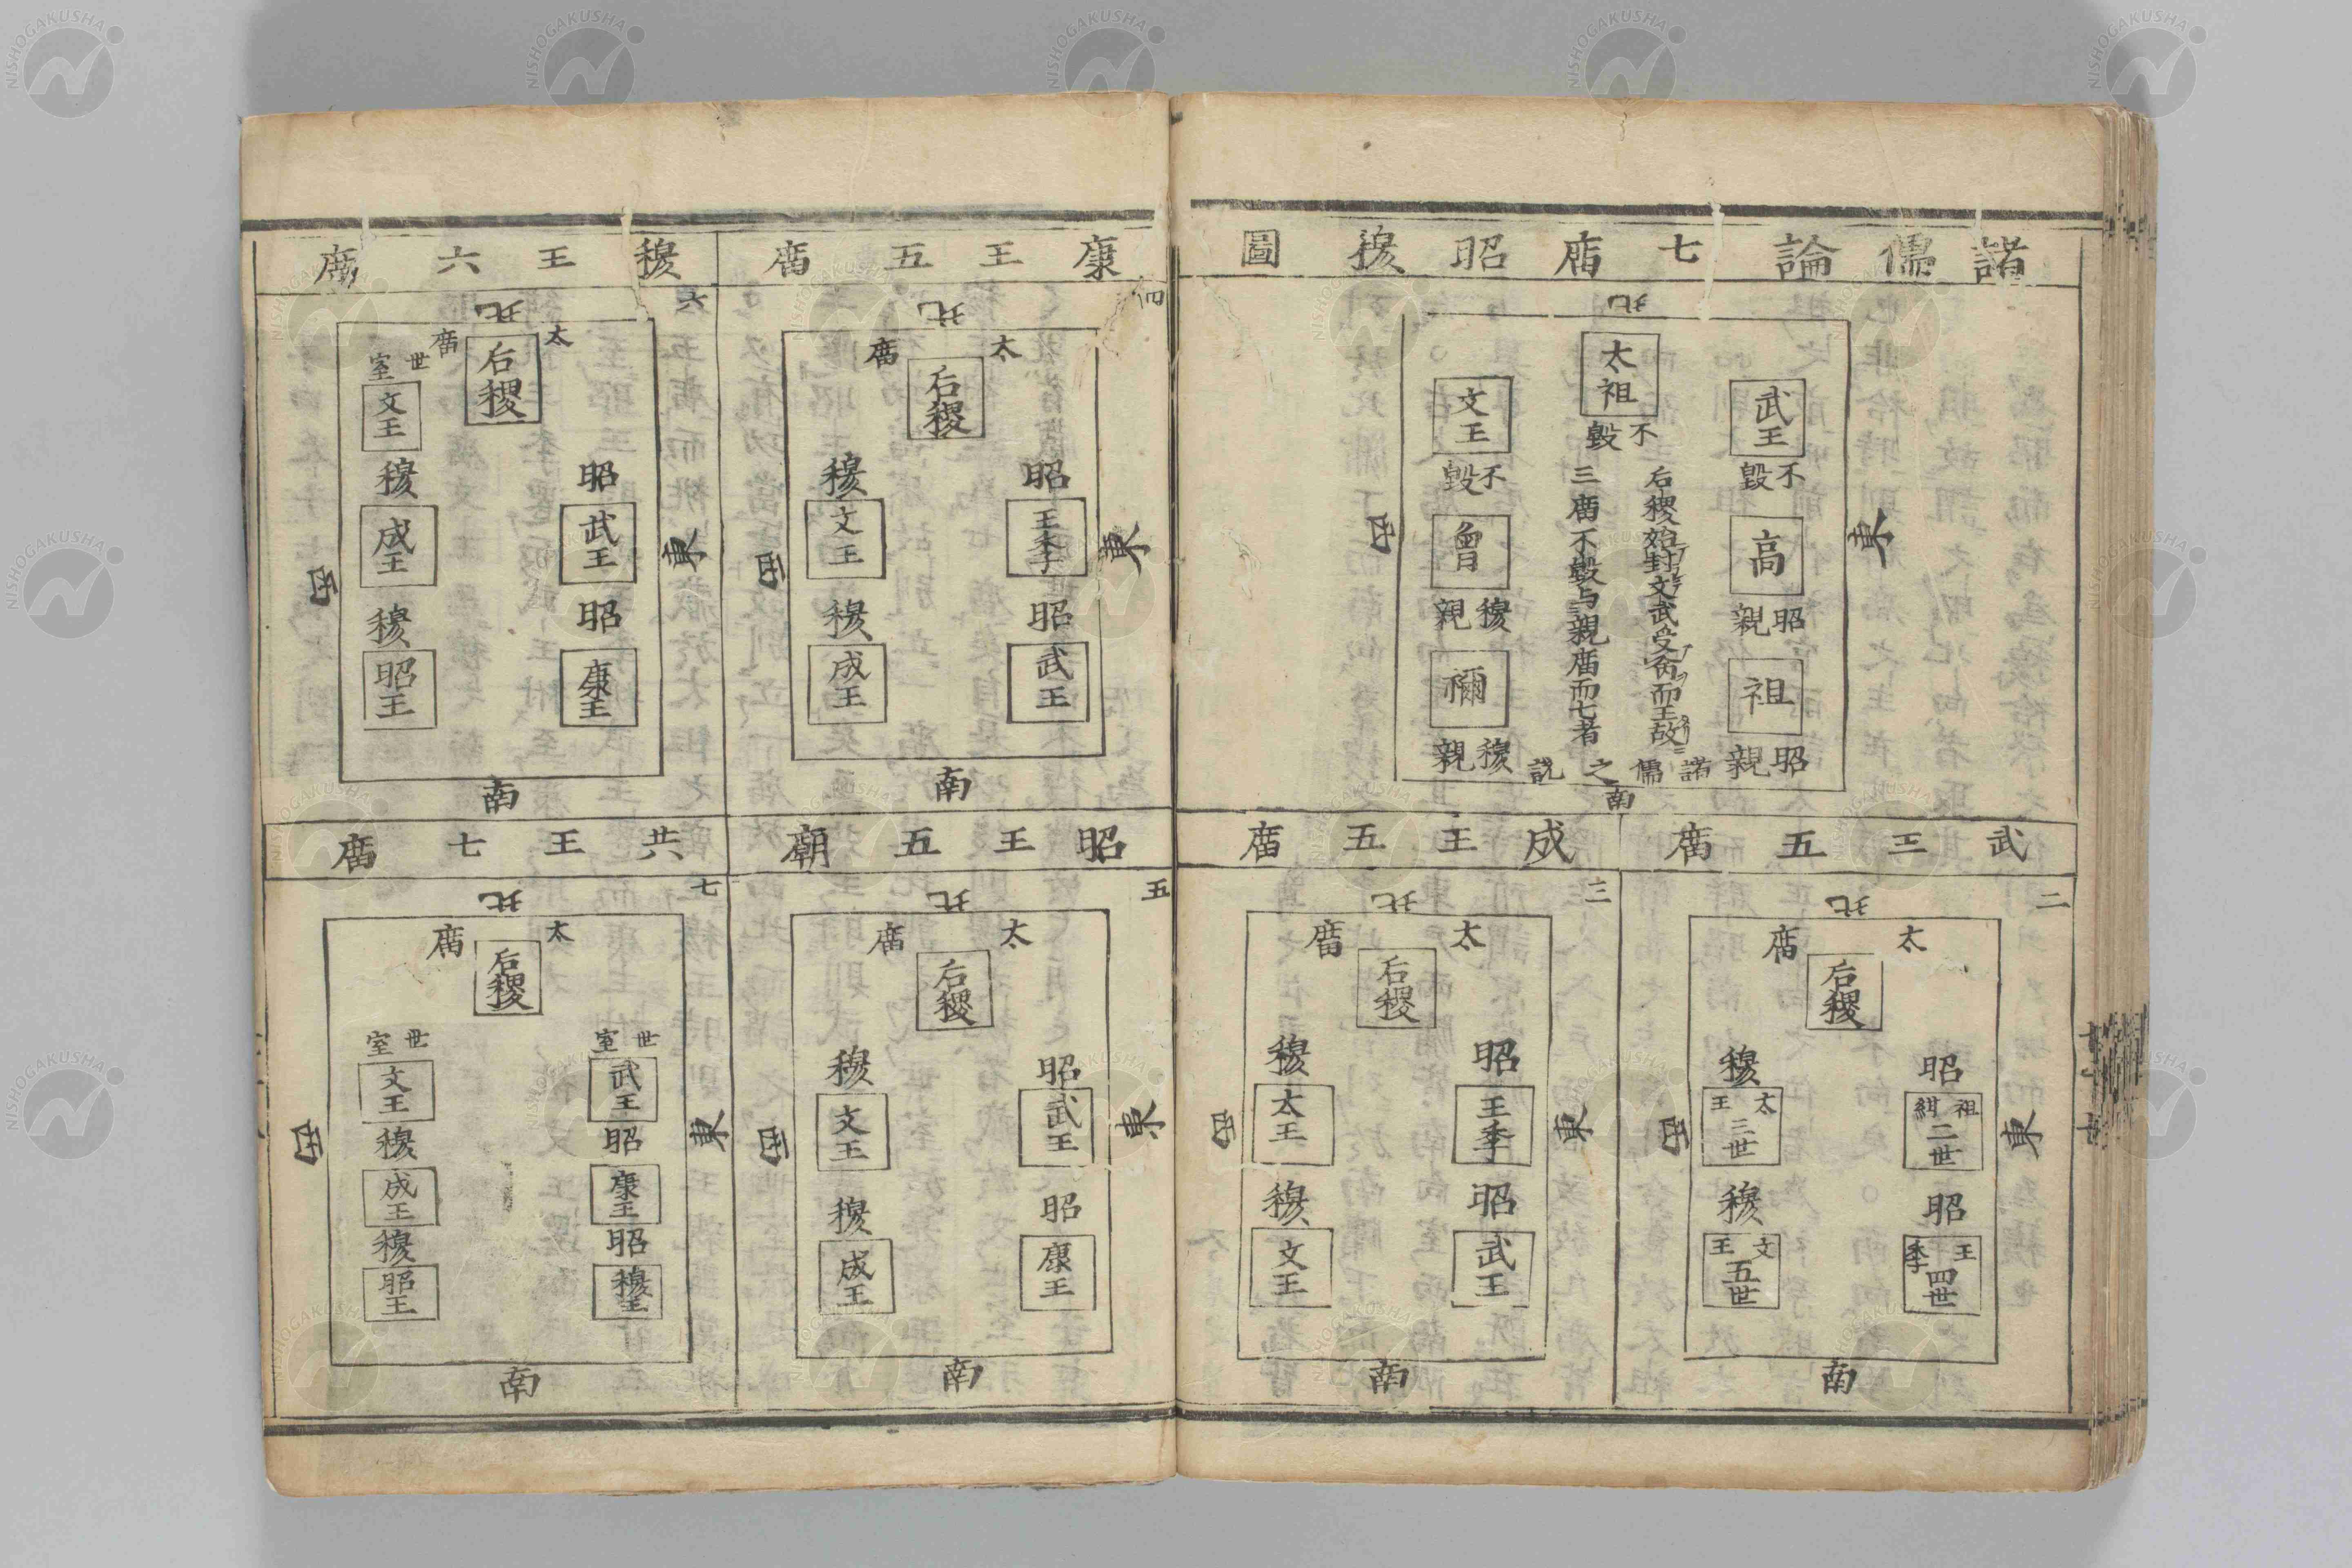 諸儒論七庿昭穆圖
北
太祖
不毀
武王
不毀
高
昭親
祖
昭親
后稷始封文武受命而王故
三庿不毀与親庿而七者
諸儒之說
文王
不毀
曾
穆親
禰
穆親
東
西
南
武王五庿
二
北
太庿
后稷
昭
祖紺二世
昭
王季四世
穆
太王三世
穆
文王五世
東
西
南
成王五庿
三
北
太庿
后稷
昭
王季
昭
武王
穆
太王
穆
文王
東
西
南
康王五庿
四
北
太庿
后稷
昭
王季
昭
武王
穆
文王
穆
成王
東
西
南
昭王五廟
五
北
太庿
后稷
昭
武王
昭
康王
穆
文王
穆
成王
東
西
南
穆王六庿
六
北
太庿
后稷
昭
武王
昭
康王
世室
文王
穆
成王
穆
昭王
東
西
南
共王七庿
七
北
太庿
后稷
世室
武王
昭
康王
昭
穆王
世室
文王
穆
成王
穆
昭王
東
西
南
NISHOGAKUSHA